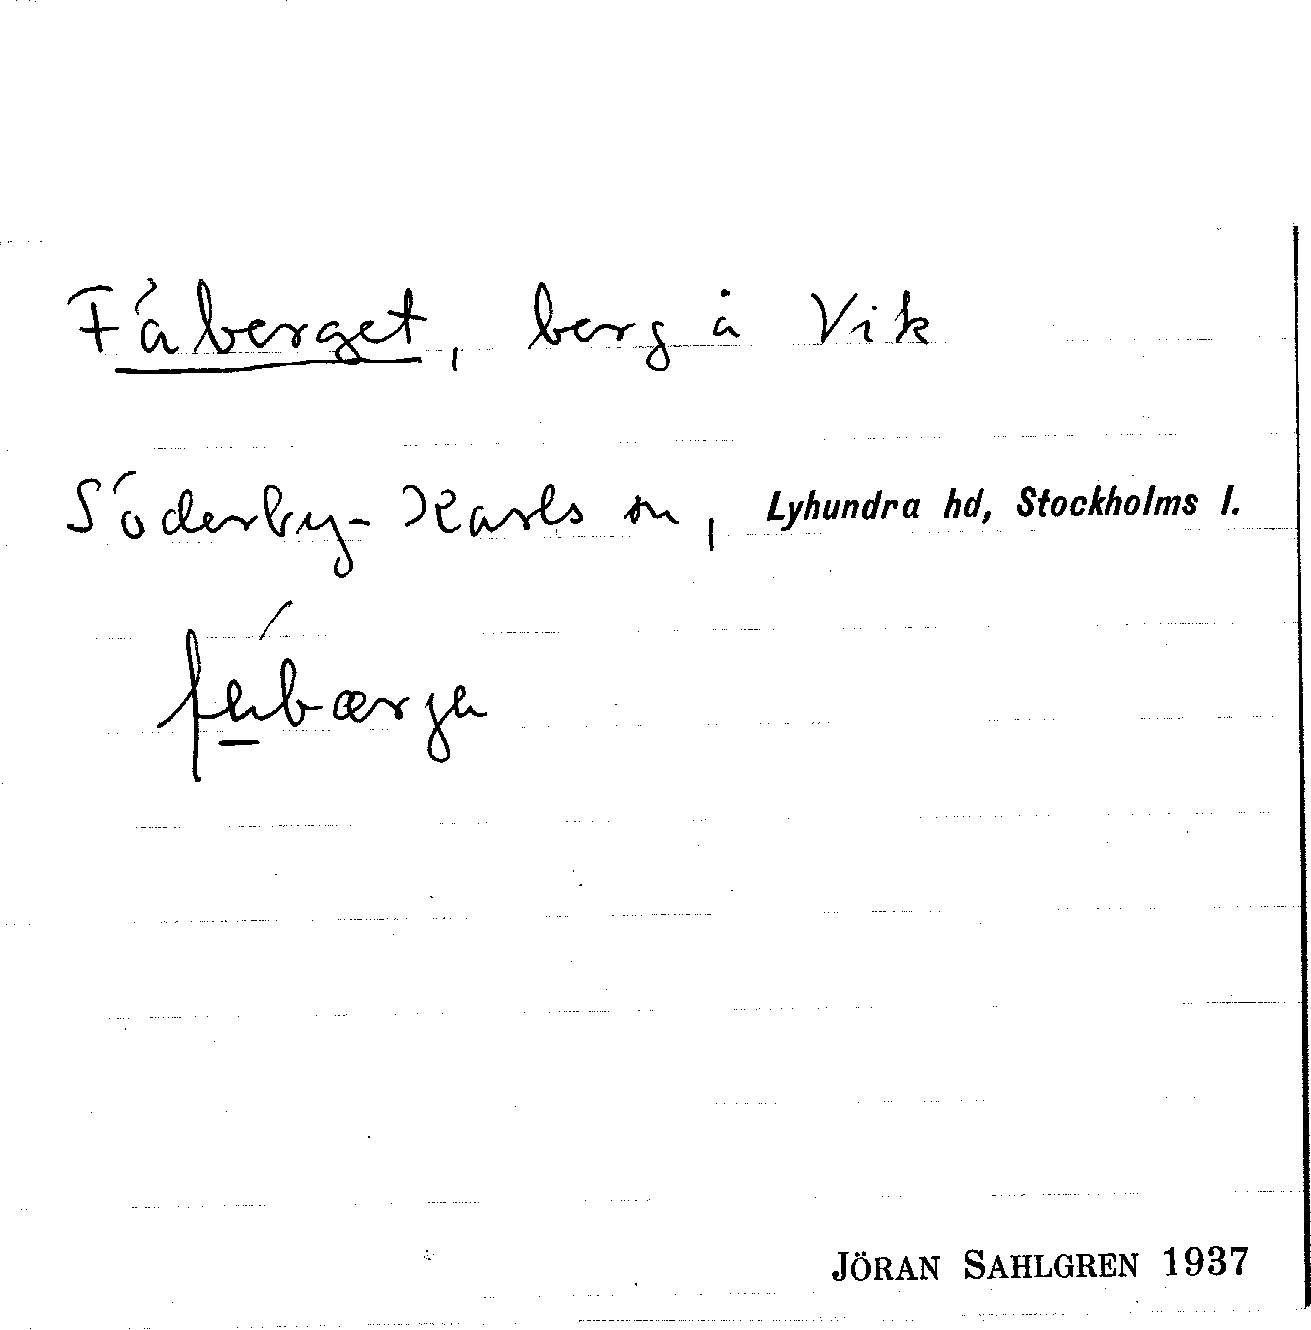 Fåberget, berg å Vik
Söderby-Karls sn, Lyhundra hd, Stockholms l.
JÖRAN SAHLGREN 1937